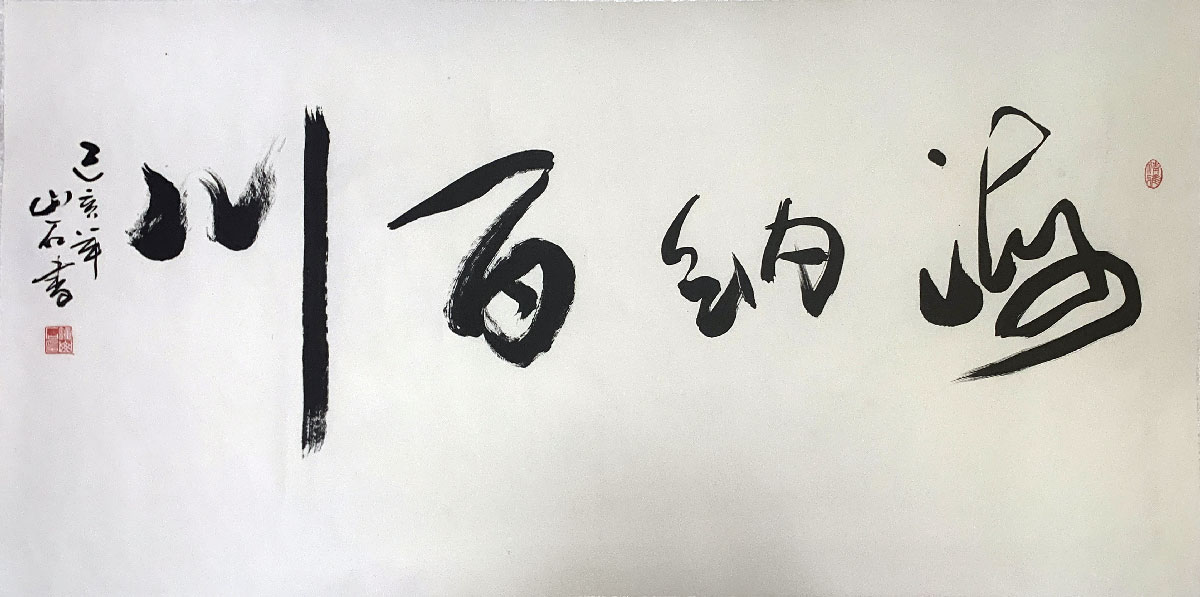 海納百川
己亥年
山石書